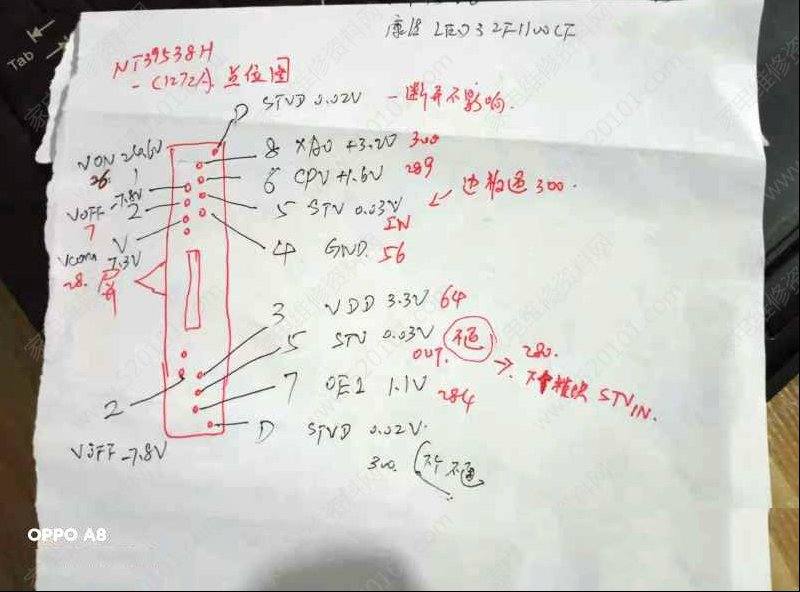 Tab
康佳 LED32F1100CF
NT39538H
-C1272A 点位图
D STVD 0.02V -断开不影响.
8 XAO +3.2V 300
VON 24.6V
26.
6 CPV +1.6V 289
VOFF -7.8V
7
2
5 STV 0.03V IN
300.
V
Vcom 7.3V
28.
4 GND. 56
3 VDD 3.3V 64
5 STV 0.03V 不通
OUT.
280.
STV IN.
7 OE1 1.1V
284
2
D STVD 0.02V.
VOFF -7.8V
300. 不通
OPPO A8